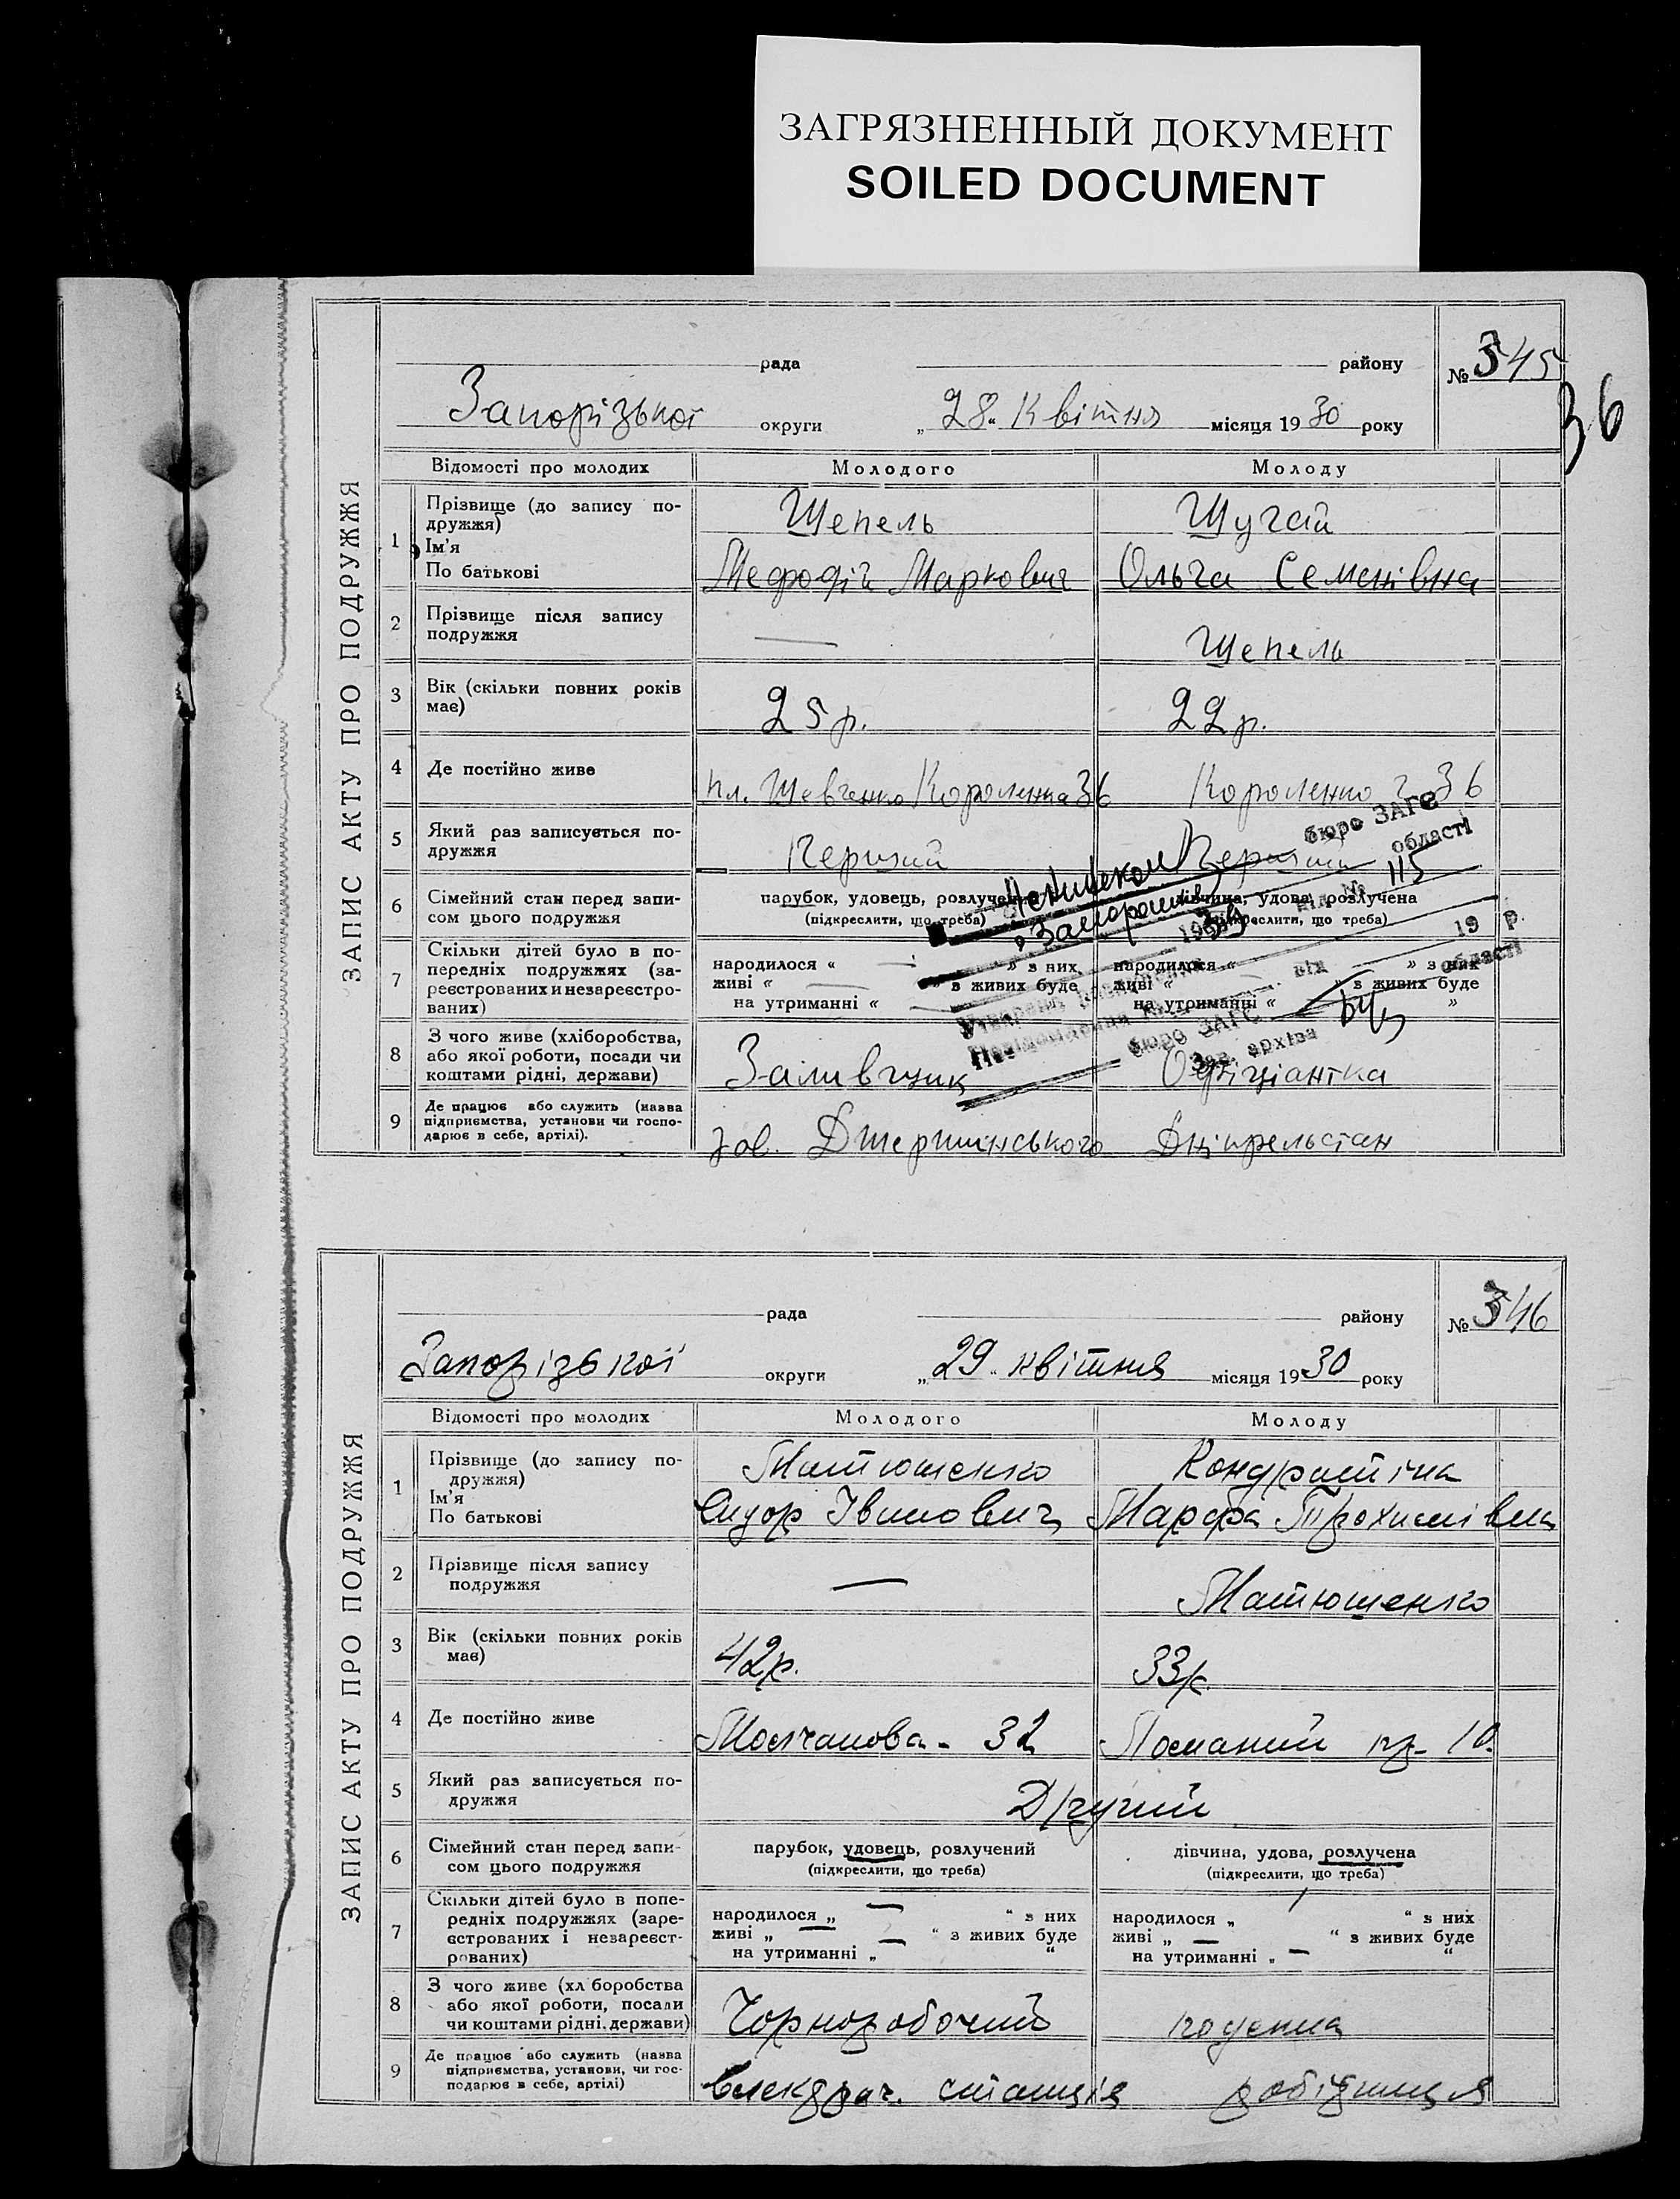 ЗАГРЯЗНЕННЫЙ ДОКУМЕНТ
SOILED DOCUMENT
ЗАПИС АКТУ ПРО ПОДРУЖЖЯ
рада району № 345
Запорізької округи „ 28 " Квітня місяця 1930 року
36
Відомості про молодих Молодого Молоду
1 Прізвище (до запису по-
дружжя) Щепель Шугай
Ім'я
По батькові Мефодій Маркович Ольга Семенівна
2 Прізвище після запису
подружжя — Щепель
3 Вік (скільки повних років
має) 25 р. 22 р.
4 Де постійно живе пл. Шевченко Короленка 36 Короленко 36
5 Який раз записується по-
дружжя Перший Перший
бюро ЗАГС
області
115
6 Сімейний стан перед запи-
сом цього подружжя
парубок, удовець, розлучений дівчина, удова, розлучена
(підкреслити, що треба) (підкреслити, що треба)
7 Скільки дітей було в по-
передніх подружжях (за-
реєстрованих и незареєстро-
ваних)
народилося « — » з них народилося « — » з них
живі « — » з живих буде живі « » з живих буде
на утриманні « — на утриманні « »
19 р.
від
області
бюро ЗАГС
Зав. архіва
8 З чого живе (хліборобства,
або якої роботи, посади чи
коштами рідні, держави) Заливщик Офіціантка
9 Де працює або служить (назва
підприємства, установи чи госпо-
дарює в себе, артілі). зав. Джержинського Дніпрельстан
ЗАПИС АКТУ ПРО ПОДРУЖЖЯ
рада району № 346
Запорізької округи „ 29 " квітня місяця 1930 року
Відомості про молодих Молодого Молоду
1 Прізвище (до запису по-
дружжя) Матюшенко Кондратіна
Ім'я
По батькові Сидор Іванович Марфа Трохимівна
2 Прізвище після запису
подружжя — Матюшенко
3 Вік (скільки повних років
має) 42 р. 33 р.
4 Де постійно живе Молчанова - 32 10.
5 Який раз записується по-
дружжя Другий
6 Сімейний стан перед запи-
сом цього подружжя
парубок, удовець, розлучений дівчина, удова, розлучена
(підкреслити, що треба) (підкреслити, що треба)
7 Скільки дітей було в попе-
редніх подружжях (заре-
єстрованих і незареєст-
рованих)
народилося „ — “ з них народилося „ “ з них
живі „ — “ з живих буде живі „ — “ з живих буде
на утриманні „ — “ на утриманні „ — “
8 З чого живе (хл боробства
або якої роботи, посади
чи коштами рідні, держави) Чорноробочий поденна
9 Де працює або служить (назва
підприємства, установи, чи гос-
подарює в себе, артілі) станція робітниця